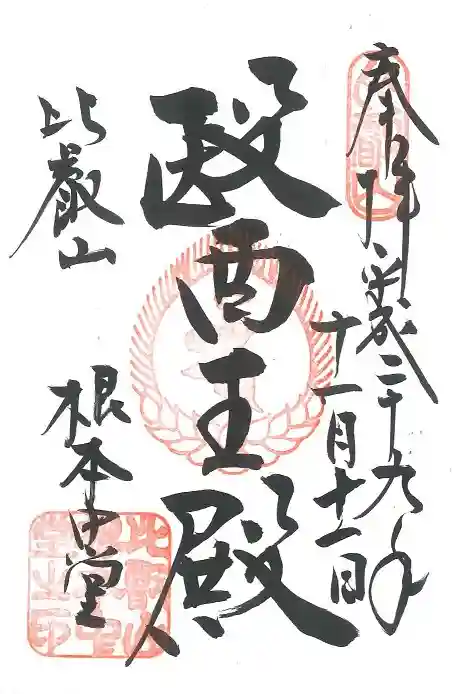 奉拝 平成二十九年
十一月十一日
醫王殿
比叡山
根本中堂
比叡山
根本中
堂之印